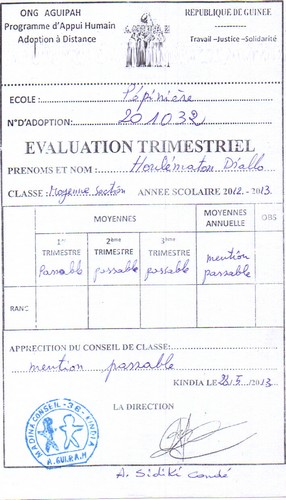 ONG AGUIPAH
Programme d'Appui Humain
Adoption à Distance
REPUBLIQUE DE GUINEE
Travail –Justice –Solidarité
ECOLE : Pépinière
N°D'ADOPTION: 201032
EVALUATION TRIMESTRIEL
PRENOMS ET NOM : Diallo
CLASSE : Moyenne Section ANNÉE SCOLAIRE 2012. - 2013.
MOYENNES
MOYENNES ANNUELLE
OBS
1er TRIMESTRE Passable
2ème TRIMESTRE passable
3ème TRIMESTRE passable
mention passable
RANG
APPRECITION DU CONSEIL DE CLASSE:
mention passable
KINDIA LE 28.5. /2013.
LA DIRECTION
MADINA CONSEIL - 36 - KINDIA
A. GUI.P.A.H
A. Sidiki Condé